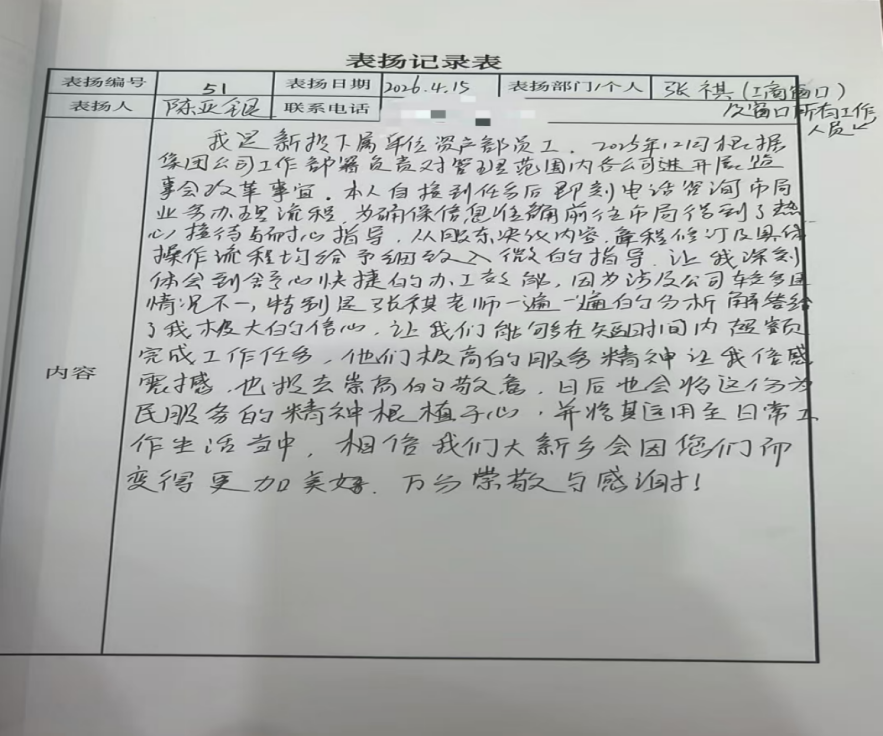 表扬记录表
表扬编号 51 表扬日期 2026.4.15 表扬部门/个人 张祺(工商窗口)
及窗口所有工作
人员
表扬人 陈亚银 联系电话
内容
我是新投下属单位资产部员工。2025年12月根据
集团公司工作部署负责对管理范围内各公司进开展监
事会改革事宜。本人自接到任务后即刻电话咨询市局
业务办理流程,为确保信息准确前往市局得到了热
心接待与耐心指导,从股东决议内容、章程修订及具体
操作流程均给予细致入微的指导,让我深刻
体会到舒心快捷的办工效能,因为涉及公司较多且
情况不一,特别是张祺老师一遍一遍的分析解答给
了我极大的信心,让我们能够在短时间内超额
完成工作任务,他们极高的服务精神让我倍感
震撼,也报去崇高的敬意,日后也会将这份为
民服务的精神根植于心,并将其运用至日常工
作生活当中,相信我们大新乡会因您们而
变得更加美好.万分崇敬与感谢!